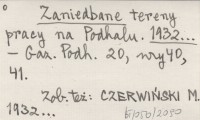 Zaniedbane tereny
pracy na Podhalu. 1932...
– Gaz. Podh. 20, nry 40,
41.
Zob. też: CZERWIŃSKI M.
1932...